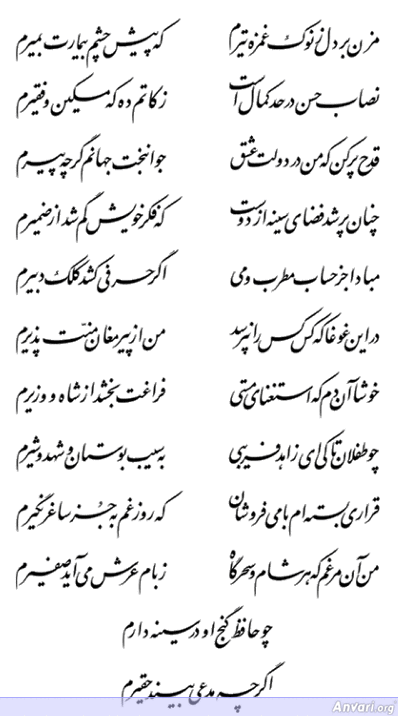 مزن بر دل ز نوک غمزه تیرم که پیش چشم بیمارت بمیرم
نصاب حسن در حد کمال است زکاتم ده که مسکین و فقیرم
قدح پر کن که من در دولت عشق جوانبخت جهانم گرچه پیرم
چنان پر شد فضای سینه از دوست که فکر خویش گم شد از ضمیرم
مبادا جز حساب مطرب و می اگر حرفی کشد کلک دبیرم
در این غوغا که کس کس را نپرسد من از پیر مغان منّت پذیرم
خوشا آن دم که استغنای مستی فراغت بخشد از شاه و وزیرم
چو طفلان تا کی ای زاهد فریبی به سیب بوستان و شهد و شیرم
قراری بسته‌ام با می فروشان که روز غم به جز ساغر نگیرم
من آن مرغم که هر شام و سحرگاه ز بام عرش می‌آید صفیرم
چو حافظ گنج او در سینه دارم
اگرچه مدعی بیند حقیرم
Anvari.org